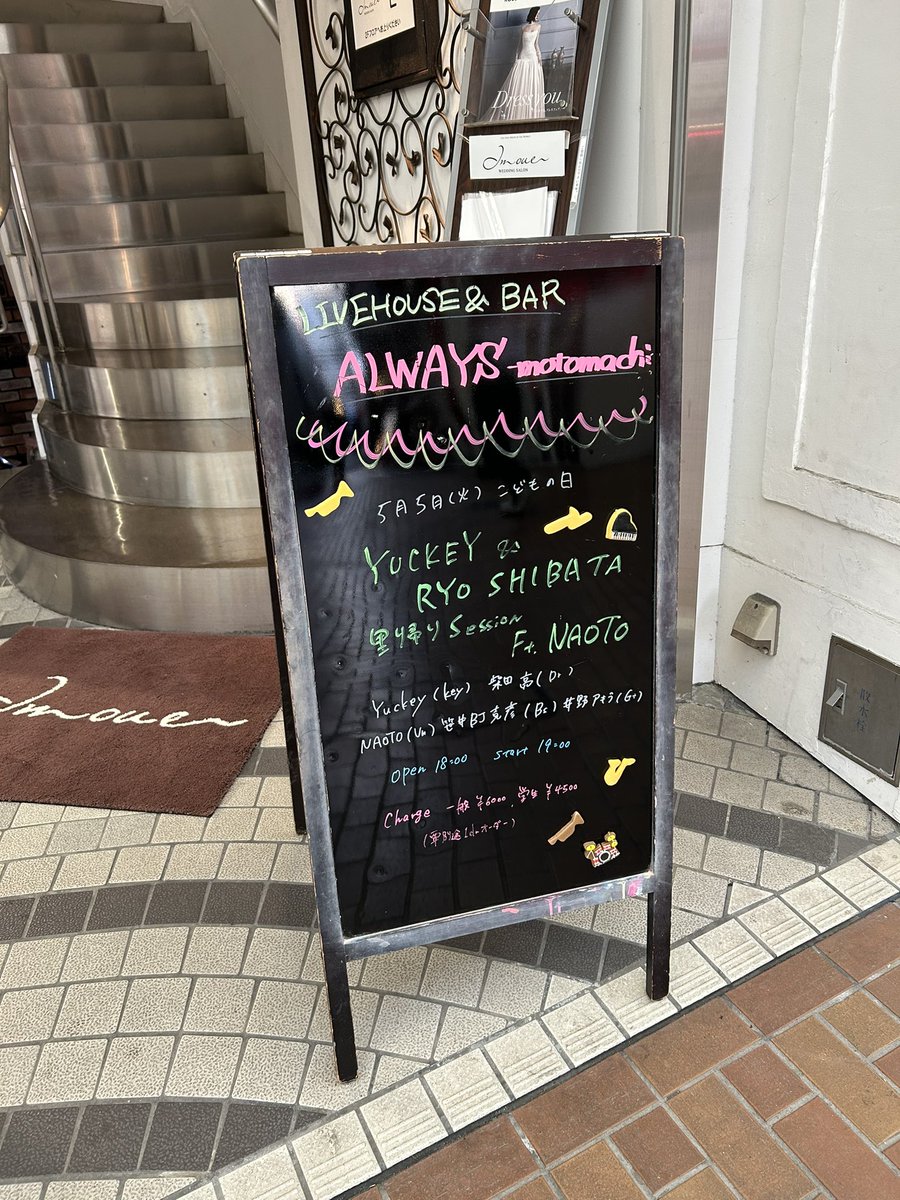 Dress you
Imouer
WEDDING SALON
LIVEHOUSE & BAR
ALWAYS -motomachi
5月5日(火) こどもの日
YUCKEY &
RYO SHIBATA
里帰り Session
Ft. NAOTO
Yuckey (Key) 柴田 亮(Dr)
NAOTO(Vn) 笹井BJ克彦(Bs) 井野アキラ(Gt)
Open 18:00 Start 19:00
Charge 一般 ¥6000, 学生 ¥4500
(要別途1drオーダー)
散水栓